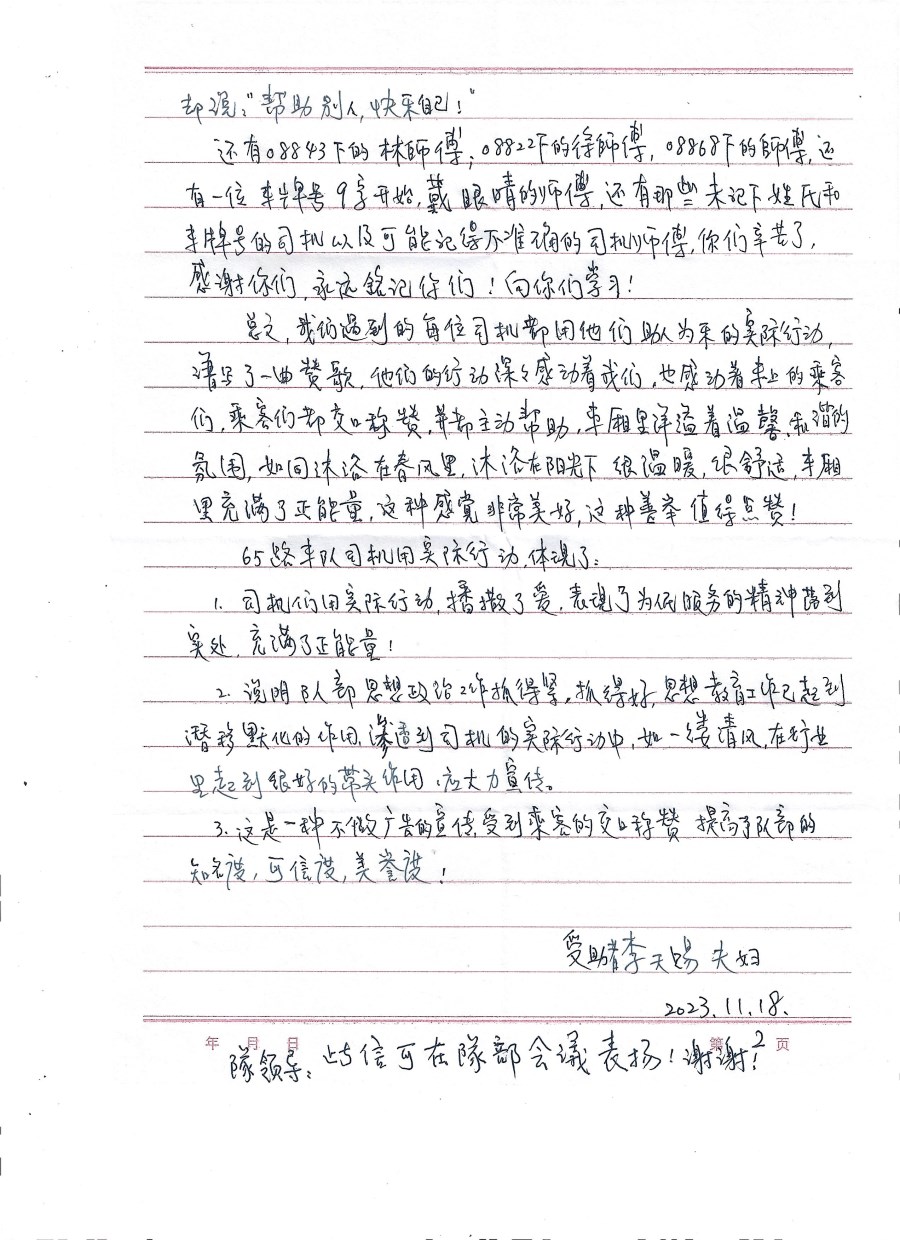 却说:"帮助别人,快乐自己!"
还有08843下的林師傅;08822下的徐師傅,08868下的師傅,还
有一位车牌号9字开始,戴眼睛的师傅,还有那些未记下姓氏和
车牌号的司机以及可能记得不准确的司机师傅,你们辛苦了,
感谢你们,永远銘记你们!向你们学习!
总之,我们遇到的每位司机都用他们助人为乐的实际行动,
谱写了一曲赞歌,他们的行动深々感动着我们,也感动着车上的乘客
们,乘客们都交口称赞,并都主动帮助,车厢里洋溢着温馨、和谐的
氛围,如同沐浴在春风里,沐浴在阳光下很温暖,很舒适,车厢
里充满了正能量,这种感觉非常美好,这种善举值得点赞!
65路车队司机用实际行动,体现了:
1. 司机们用实际行动,播撒了爱,表现了为民服务的精神落到
实处,充满了正能量!
2. 说明队部思想政治工作抓得紧,抓得好,思想教育工作已起到
潜移默化的作用,渗透到司机的实际行动中,如一缕清风,在行业
里起到很好的带头作用,应大力宣传。
3. 这是一种不做广告的宣传,受到乘客的交口称赞 提高了队部的
知名度,可信度,美誉度!
受助者李天赐夫妇
2023.11.18.
年 月 日 第 2 页
隊领导:此信可在隊部会議表扬!谢谢!